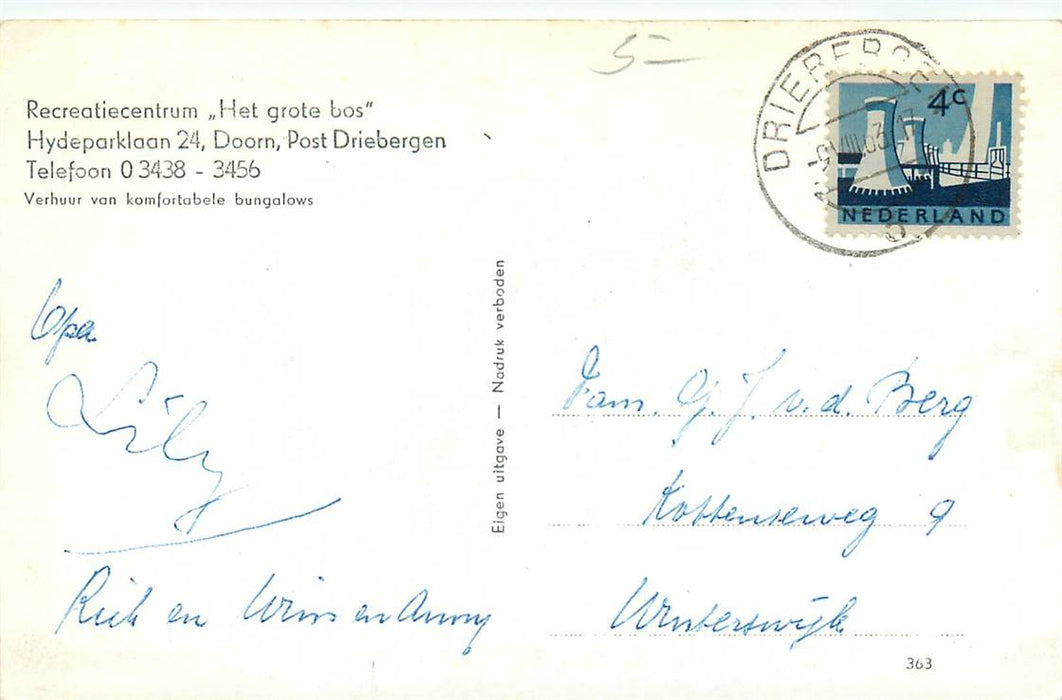 5-
Recreatiecentrum „Het grote bos"
Hydeparklaan 24, Doorn, Post Driebergen
Telefoon 0 3438 - 3456
Verhuur van komfortabele bungalows
4c
NEDERLAND
Opa
Lily
Riek en Wim en Anny
Eigen uitgave — Nadruk verboden
Fam. G. J. v. d. Berg
Kottenseweg 9
Winterswijk
363